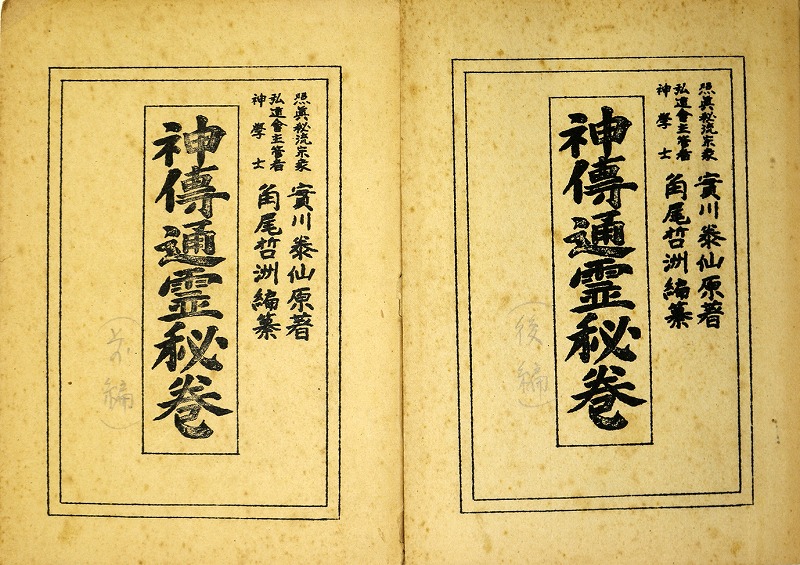 照眞秘流宗家
實川泰仙原著
弘道會主管者
神學士
角尾哲洲編纂
神傳通霊秘巻
(前編)
照眞秘流宗家
實川泰仙原著
弘道會主管者
神學士
角尾哲洲編纂
神傳通霊秘巻
(後編)